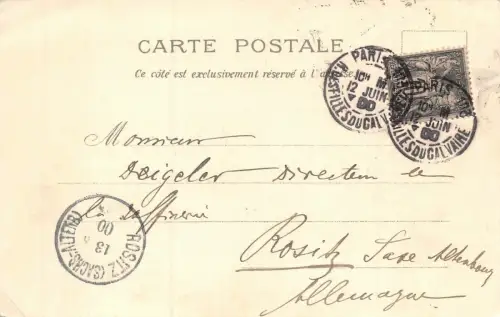 CARTE POSTALE
Ce côté est exclusivement réservé à l'adresse
PARIS
10H M
12 JUIN
00
R. DES FILLES DU CALVAIRE
PARIS
10H
12 JUIN
00
FILLES DU CALVAIRE
Monsieur
Deigeler Directeur de
la Raffinerie
Rositz Saxe Altenbourg
Allemagne
ROSITZ (SACHS-ALTENB)
13
00